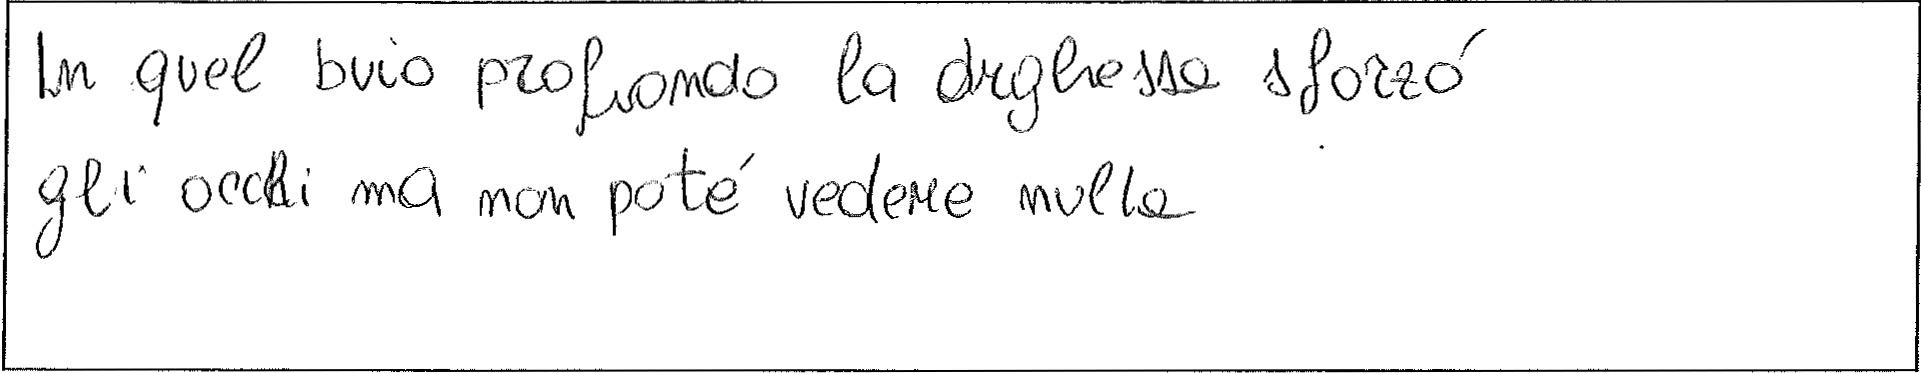 In quel buio profuondo la drghessa sforzó
gli occhi ma non poté vedere nulla